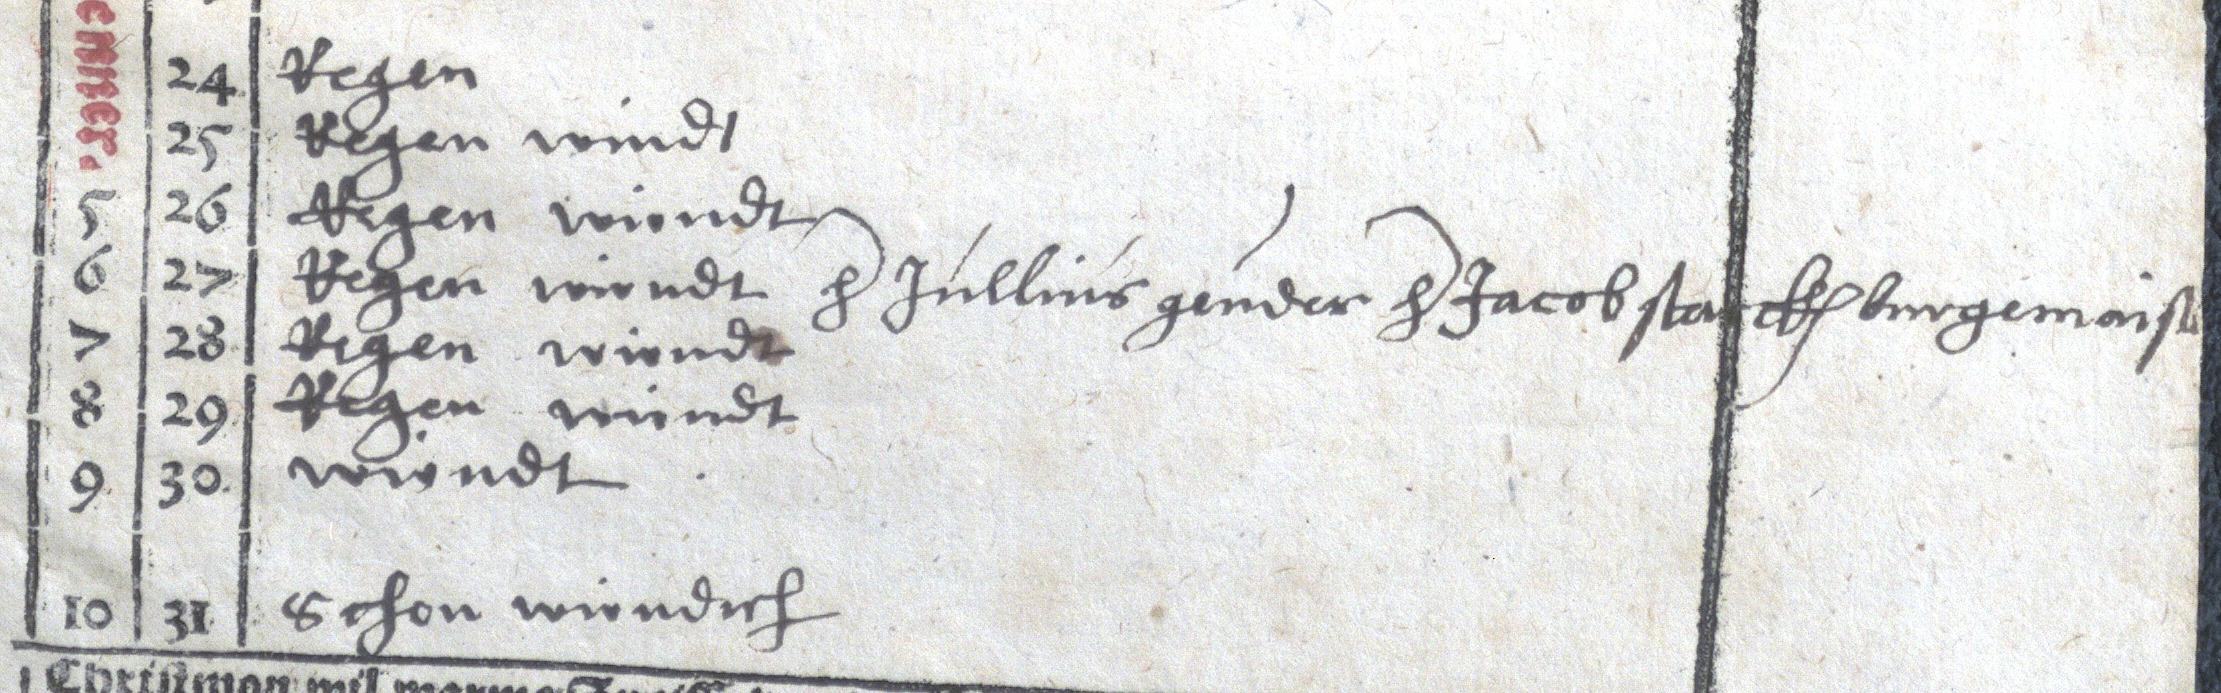 enner.
24 Regen
25 Regen windt
5 26 Regen windt
6 27 Regen windt h Jullius geuder h Jacob starck burgemaist
7 28 Regen windt
8 29 Regen windt
9 30 windt
10 31 Schon windich
Christmon wil warme